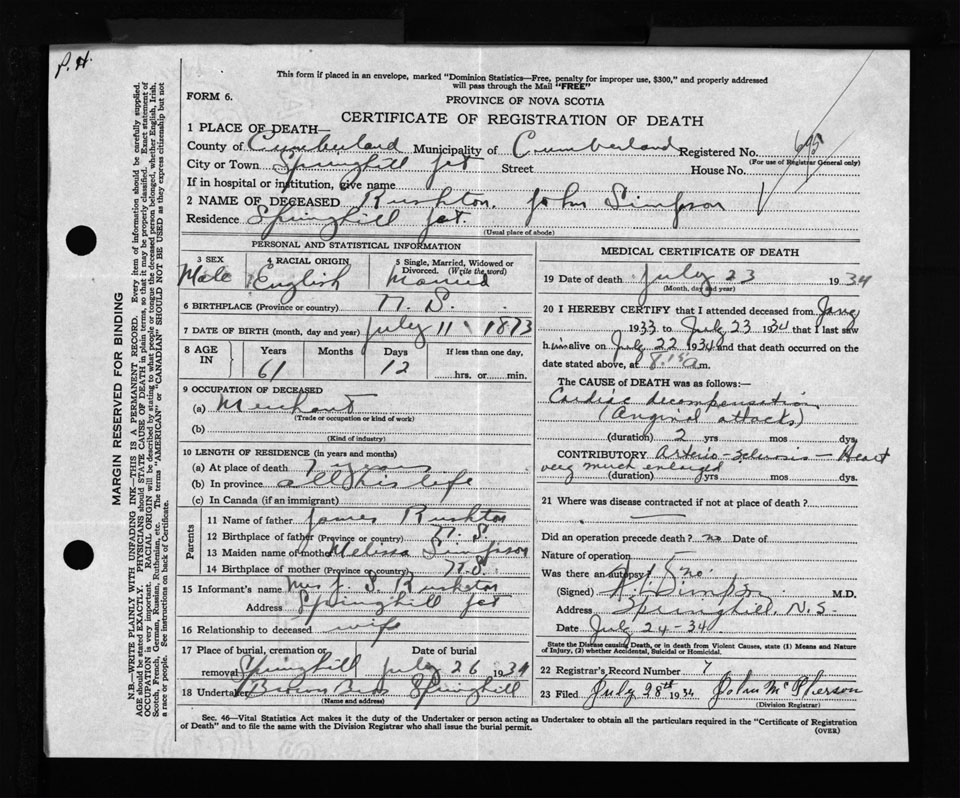 P. H.
This form if placed in an envelope, marked "Dominion Statistics—Free, penalty for improper use, $300," and properly addressed
will pass through the Mail "FREE"
FORM 6.
PROVINCE OF NOVA SCOTIA
CERTIFICATE OF REGISTRATION OF DEATH
1 PLACE OF DEATH—
County of Cumberland Municipality of Cumberland Registered No. 695
(For use of Registrar General only)
City or Town Springhill Jct Street House No.
If in hospital or institution, give name
2 NAME OF DECEASED Rushton, John Simpson
Residence Springhill Jct.
(Usual place of abode)
PERSONAL AND STATISTICAL INFORMATION
3 SEX 4 RACIAL ORIGIN 5 Single, Married, Widowed or
Divorced. (Write the word)
Male English Married
6 BIRTHPLACE (Province or country) N. S.
7 DATE OF BIRTH (month, day and year) July 11 1873
8 AGE IN Years Months Days If less than one day,
61 12 hrs. or min.
9 OCCUPATION OF DECEASED
(a) Merchant
(Trade or occupation or kind of work)
(b)
(Kind of industry)
10 LENGTH OF RESIDENCE (in years and months)
(a) At place of death 7 years
(b) In province all his life
(c) In Canada (if an immigrant)
Parents
11 Name of father James Rushton
12 Birthplace of father (Province or country) N. S.
13 Maiden name of mother Melissa Simpson
14 Birthplace of mother (Province or country) N.S.
15 Informant's name Mrs J. S. Rushton
Address Springhill Jct
16 Relationship to deceased wife
17 Place of burial, cremation or Date of burial
removal Springhill July 26 1934
18 Undertaker Brown Bros Springhill
(Name and address)
MEDICAL CERTIFICATE OF DEATH
19 Date of death July 23 1934
(Month, day and year)
20 I HEREBY CERTIFY that I attended deceased from
1933 to July 23 1934 that I last saw
him alive on July 22 1934 and that death occurred on the
date stated above, at 8.15 a m.
The CAUSE of DEATH was as follows:—
Cardiac decompensation
(Anginal attacks)
(duration) 2 yrs mos dys.
CONTRIBUTORY Arterio-sclerosis — Heart
very much enlarged
(duration) yrs mos dys.
21 Where was disease contracted if not at place of death?
Did an operation precede death? no Date of
Nature of operation
Was there an autopsy? no
(Signed) Simpson M.D.
Address Springhill, N.S.
Date July 24-34
State the Disease causing Death, or in death from Violent Causes, state (1) Means and Nature
of Injury, (2) whether Accidental, Suicidal or Homicidal.
22 Registrar's Record Number 7
23 Filed July 28th 1934 John McPherson
(Division Registrar)
Sec. 46—Vital Statistics Act makes it the duty of the Undertaker or person acting as Undertaker to obtain all the particulars required in the "Certificate of Registration
of Death" and to file the same with the Division Registrar who shall issue the burial permit.
(OVER)
MARGIN RESERVED FOR BINDING
N.B.—WRITE PLAINLY WITH UNFADING INK—THIS IS A PERMANENT RECORD. Every item of information should be carefully supplied.
AGE should be stated EXACTLY. PHYSICIANS should STATE CAUSE OF DEATH in plain terms, so that it may be properly classified. Exact statement of
OCCUPATION is very important. RACIAL ORIGIN will be described by stating to what people or tongue the deceased person belonged, whether English, Irish,
Scotch, French, German, Russian, Ruthenian, etc. The terms "AMERICAN" or "CANADIAN" SHOULD NOT BE USED as they express citizenship but not
a race or people. See instructions on back of Certificate.